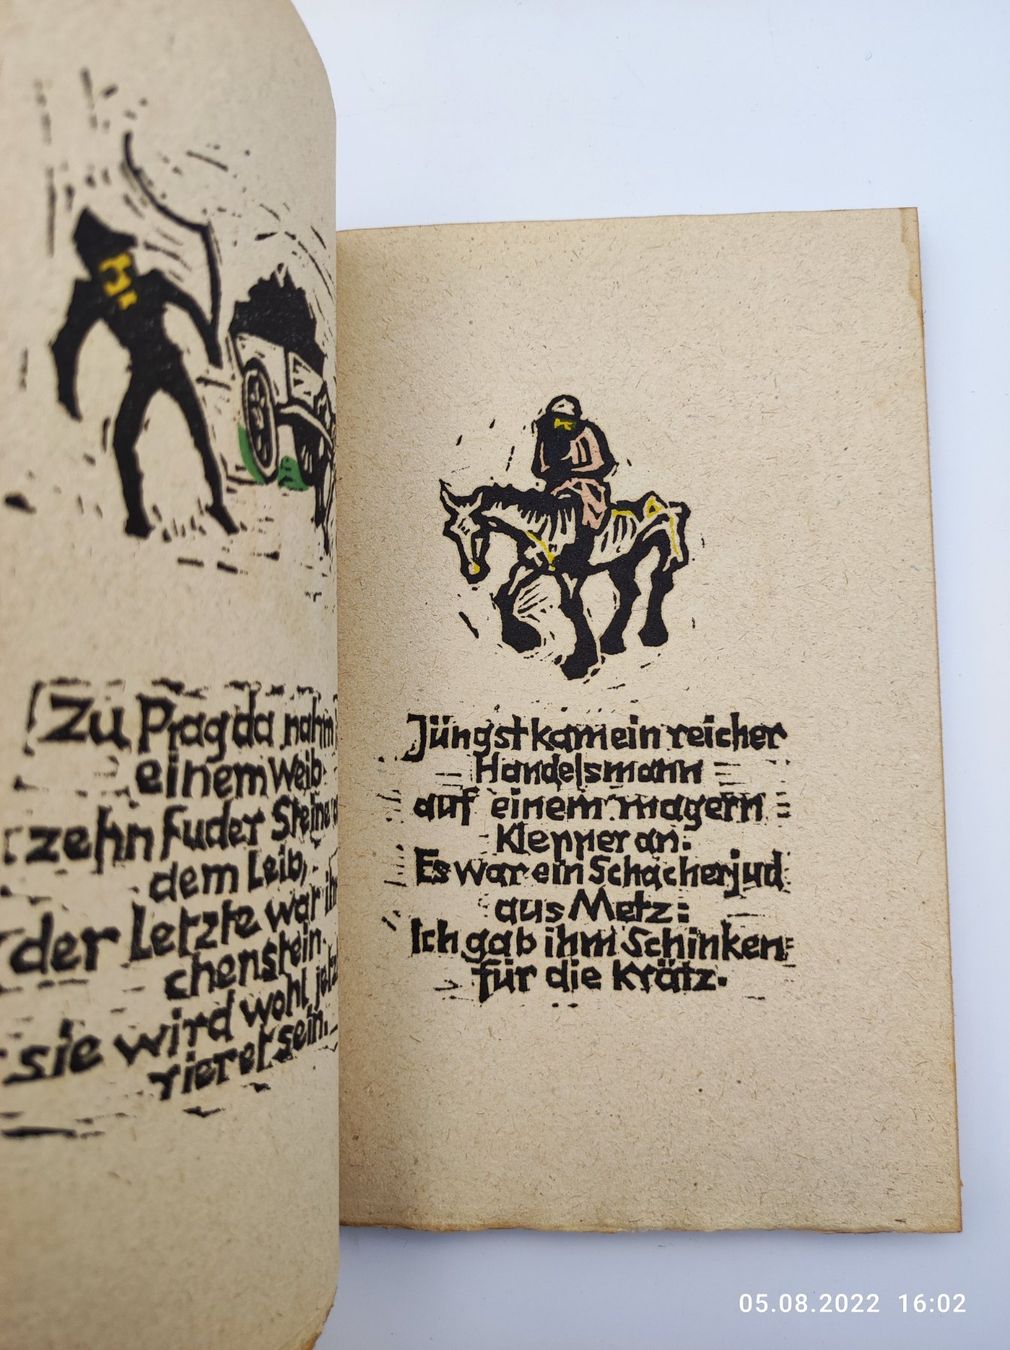 Zu Prag da nahm
einem Weib
zehn Fuder Steine
dem Leib,
der Letzte war
chenstein
sie wird wohl
rieret sein.
Jüngst kam ein reicher
Handelsmann
auf einem magern
Klepper an:
Es war ein Schacherjud
aus Metz:
Ich gab ihm Schinken
für die Krätz.
05.08.2022 16:02